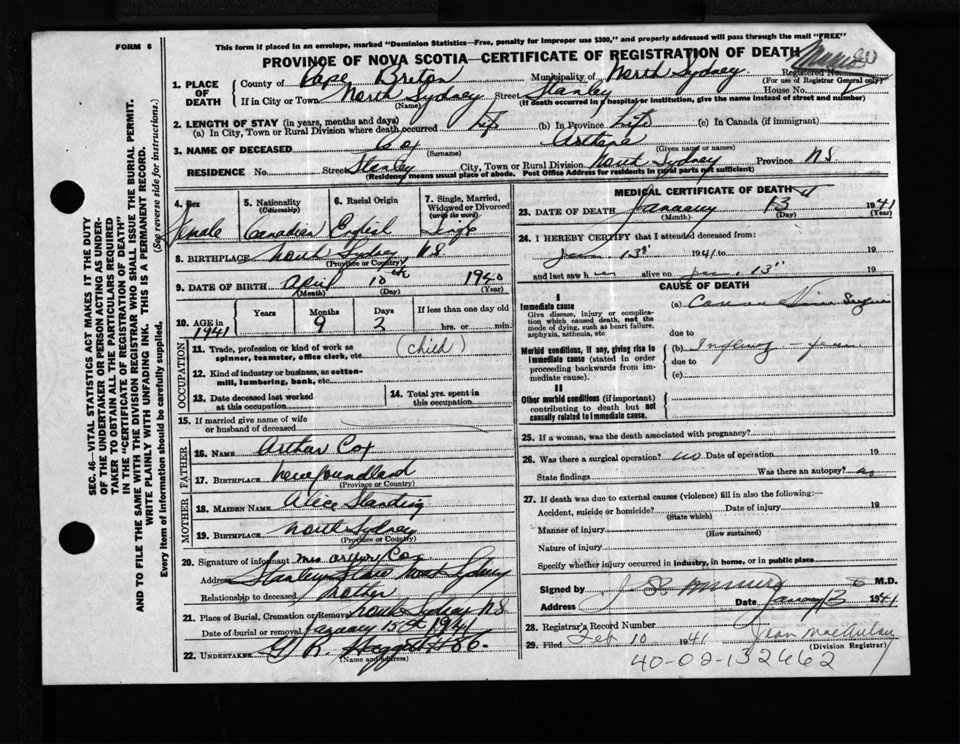 FORM 6
This form if placed in an envelope, marked "Dominion Statistics—Free, penalty for improper use $300," and properly addressed will pass through the mail "FREE"
PROVINCE OF NOVA SCOTIA—CERTIFICATE OF REGISTRATION OF DEATH
1. PLACE OF DEATH
County of Cape Breton Municipality of North Sydney Registered No.
(For use of Registrar General only)
If in City or Town North Sydney Street Stanley House No.
(Name) (If death occurred in a hospital or institution, give the name instead of street and number)
2. LENGTH OF STAY (in years, months and days)
(a) In City, Town or Rural Division where death occurred Life (b) In Province Life (c) In Canada (if immigrant)
3. NAME OF DECEASED Cox
(Surname) (Given name or names)
RESIDENCE No. Street Stanley City, Town or Rural Division North Sydney Province NS
(Residence means usual place of abode. Post Office Address for residents in rural parts not sufficient)
4. Sex Female
5. Nationality (Citizenship) Canadian
6. Racial Origin English
7. Single, Married, Widowed or Divorced (write the word) Single
8. BIRTHPLACE North Sydney NS
(Province or Country)
9. DATE OF BIRTH April 10th 1940
(Month) (Day) (Year)
10. AGE in 1941 Years Months 9 Days 2 If less than one day old hrs. or min.
OCCUPATION
11. Trade, profession or kind of work as spinner, teamster, office clerk, etc. (child)
12. Kind of industry or business, as cotton-mill, lumbering, bank, etc.
13. Date deceased last worked at this occupation
14. Total yrs. spent in this occupation
15. If married give name of wife or husband of deceased
FATHER
16. NAME Arthur Cox
17. BIRTHPLACE Newfoundland
(Province or Country)
MOTHER
18. MAIDEN NAME Alice
19. BIRTHPLACE North Sydney
(Province or Country)
20. Signature of informant Mrs Arthur Cox
Address Stanley North Sydney
Relationship to deceased Mother
21. Place of Burial, Cremation or Removal North Sydney NS
Date of burial or removal January 15th 1941
22. UNDERTAKER
(Name and address)
MEDICAL CERTIFICATE OF DEATH
23. DATE OF DEATH January 13 1941
(Month) (Day) (Year)
24. I HEREBY CERTIFY that I attended deceased from:
Jan 13" 1941 to 19
and last saw h alive on Jan. 13" 19
CAUSE OF DEATH
I
Immediate cause
Give disease, injury or complication which caused death, not the mode of dying, such as heart failure, asphyxia, asthenia, etc
(a)
due to
Morbid conditions, if any, giving rise to immediate cause (stated in order proceeding backwards from immediate cause).
(b)
due to
(c)
II
Other morbid conditions (if important) contributing to death but not causally related to immediate cause.
25. If a woman, was the death associated with pregnancy?
26. Was there a surgical operation? no Date of operation 19
State findings Was there an autopsy? no
27. If death was due to external causes (violence) fill in also the following:—
Accident, suicide or homicide? Date of injury 19
(State which)
Manner of injury
(How sustained)
Nature of injury
Specify whether injury occurred in industry, in home, or in public place
Signed by M.D.
Address Date January 13 1941
28. Registrar's Record Number
29. Filed Feb 10 1941
(Division Registrar)
40-02-132662
SEC. 46—VITAL STATISTICS ACT MAKES IT THE DUTY
OF THE UNDERTAKER OR PERSON ACTING AS UNDER-
TAKER TO OBTAIN ALL THE PARTICULARS REQUIRED
IN THE "CERTIFICATE OF REGISTRATION OF DEATH"
AND TO FILE THE SAME WITH THE DIVISION REGISTRAR WHO SHALL ISSUE THE BURIAL PERMIT.
WRITE PLAINLY WITH UNFADING INK. THIS IS A PERMANENT RECORD.
Every item of information should be carefully supplied. (See reverse side for instructions.)